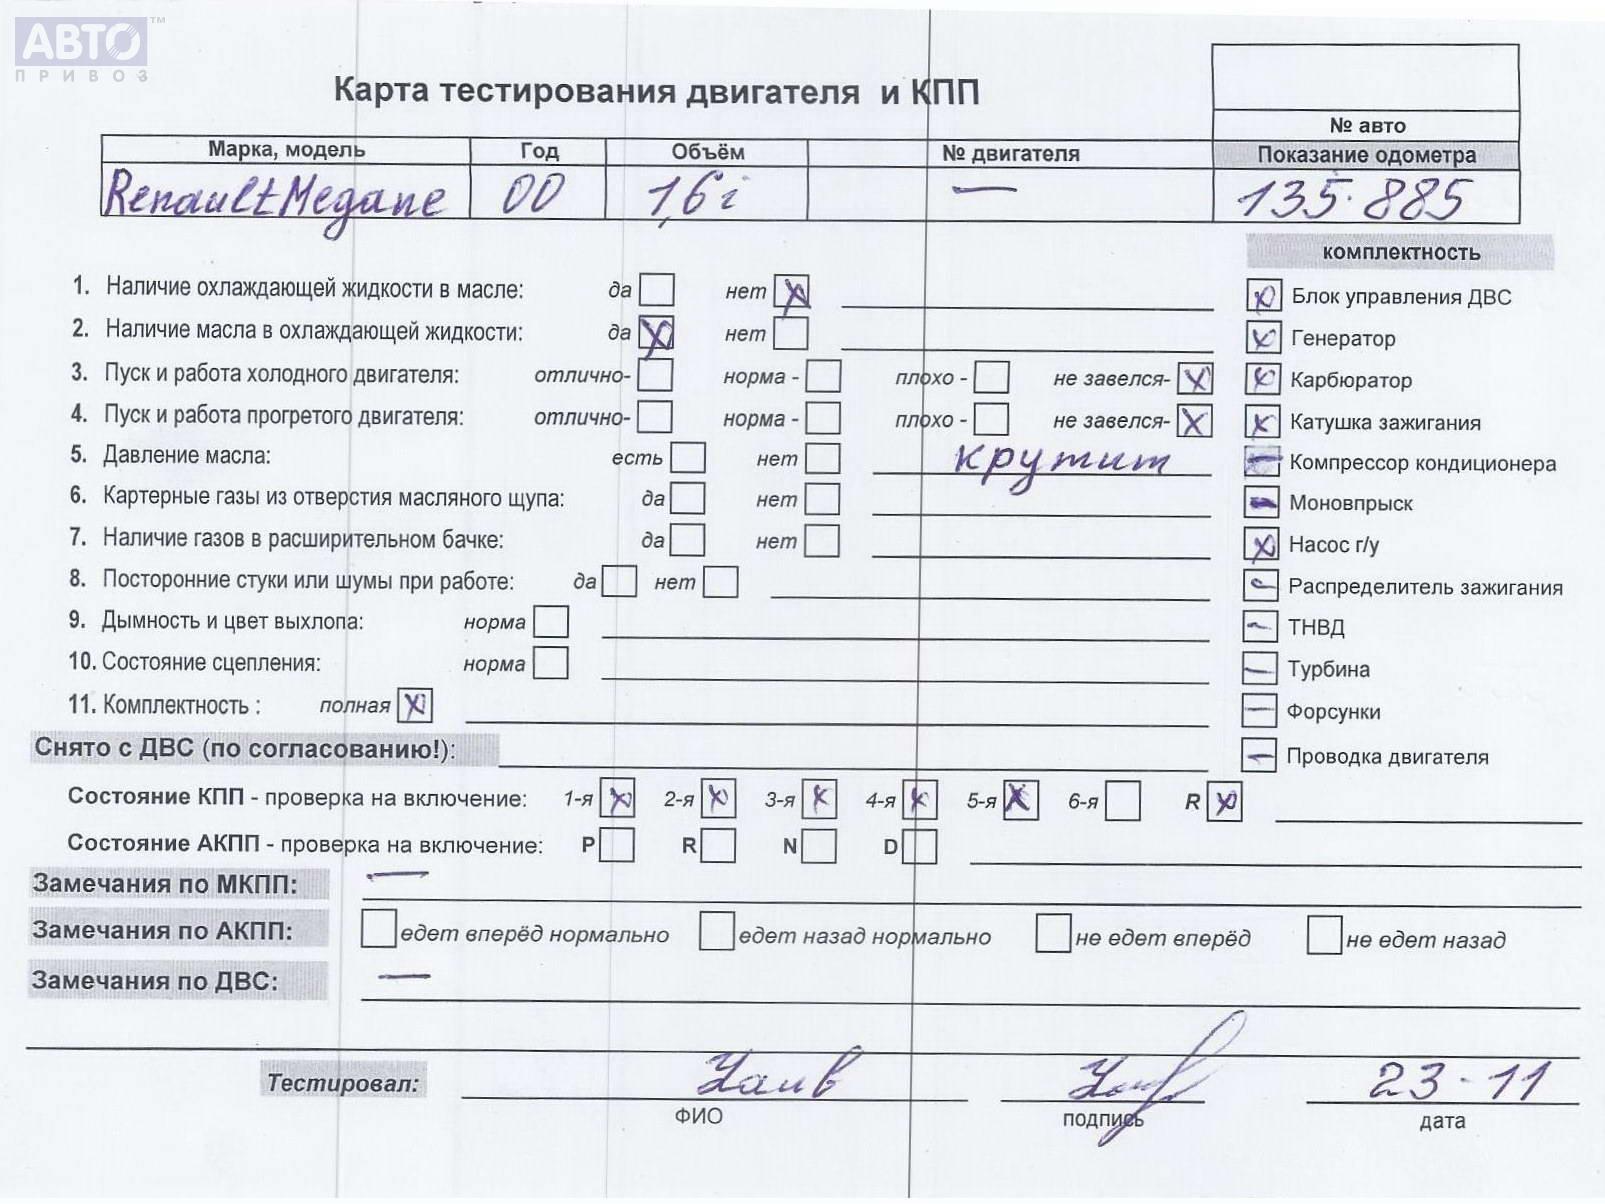 АВТО™
ПРИВОЗ
Карта тестирования двигателя и КПП
№ авто
Марка, модель Год Объём № двигателя Показание одометра
Renault Megane 00 1,6i — 135.885
комплектность
1. Наличие охлаждающей жидкости в масле: да нет X
2. Наличие масла в охлаждающей жидкости: да X нет
3. Пуск и работа холодного двигателя: отлично- норма - плохо - не завелся- X
4. Пуск и работа прогретого двигателя: отлично- норма - плохо - не завелся- X
5. Давление масла: есть нет крутит
6. Картерные газы из отверстия масляного щупа: да нет
7. Наличие газов в расширительном бачке: да нет
8. Посторонние стуки или шумы при работе: да нет
9. Дымность и цвет выхлопа: норма
10. Состояние сцепления: норма
11. Комплектность : полная X
X Блок управления ДВС
X Генератор
X Карбюратор
X Катушка зажигания
— Компрессор кондиционера
— Моновпрыск
X Насос г/у
— Распределитель зажигания
— ТНВД
— Турбина
— Форсунки
— Проводка двигателя
Снято с ДВС (по согласованию!):
Состояние КПП - проверка на включение: 1-я X 2-я X 3-я X 4-я X 5-я X 6-я R X
Состояние АКПП - проверка на включение: P R N D
Замечания по МКПП: —
Замечания по АКПП: едет вперёд нормально едет назад нормально не едет вперёд не едет назад
Замечания по ДВС: —
Тестировал: 23-11
ФИО подпись дата